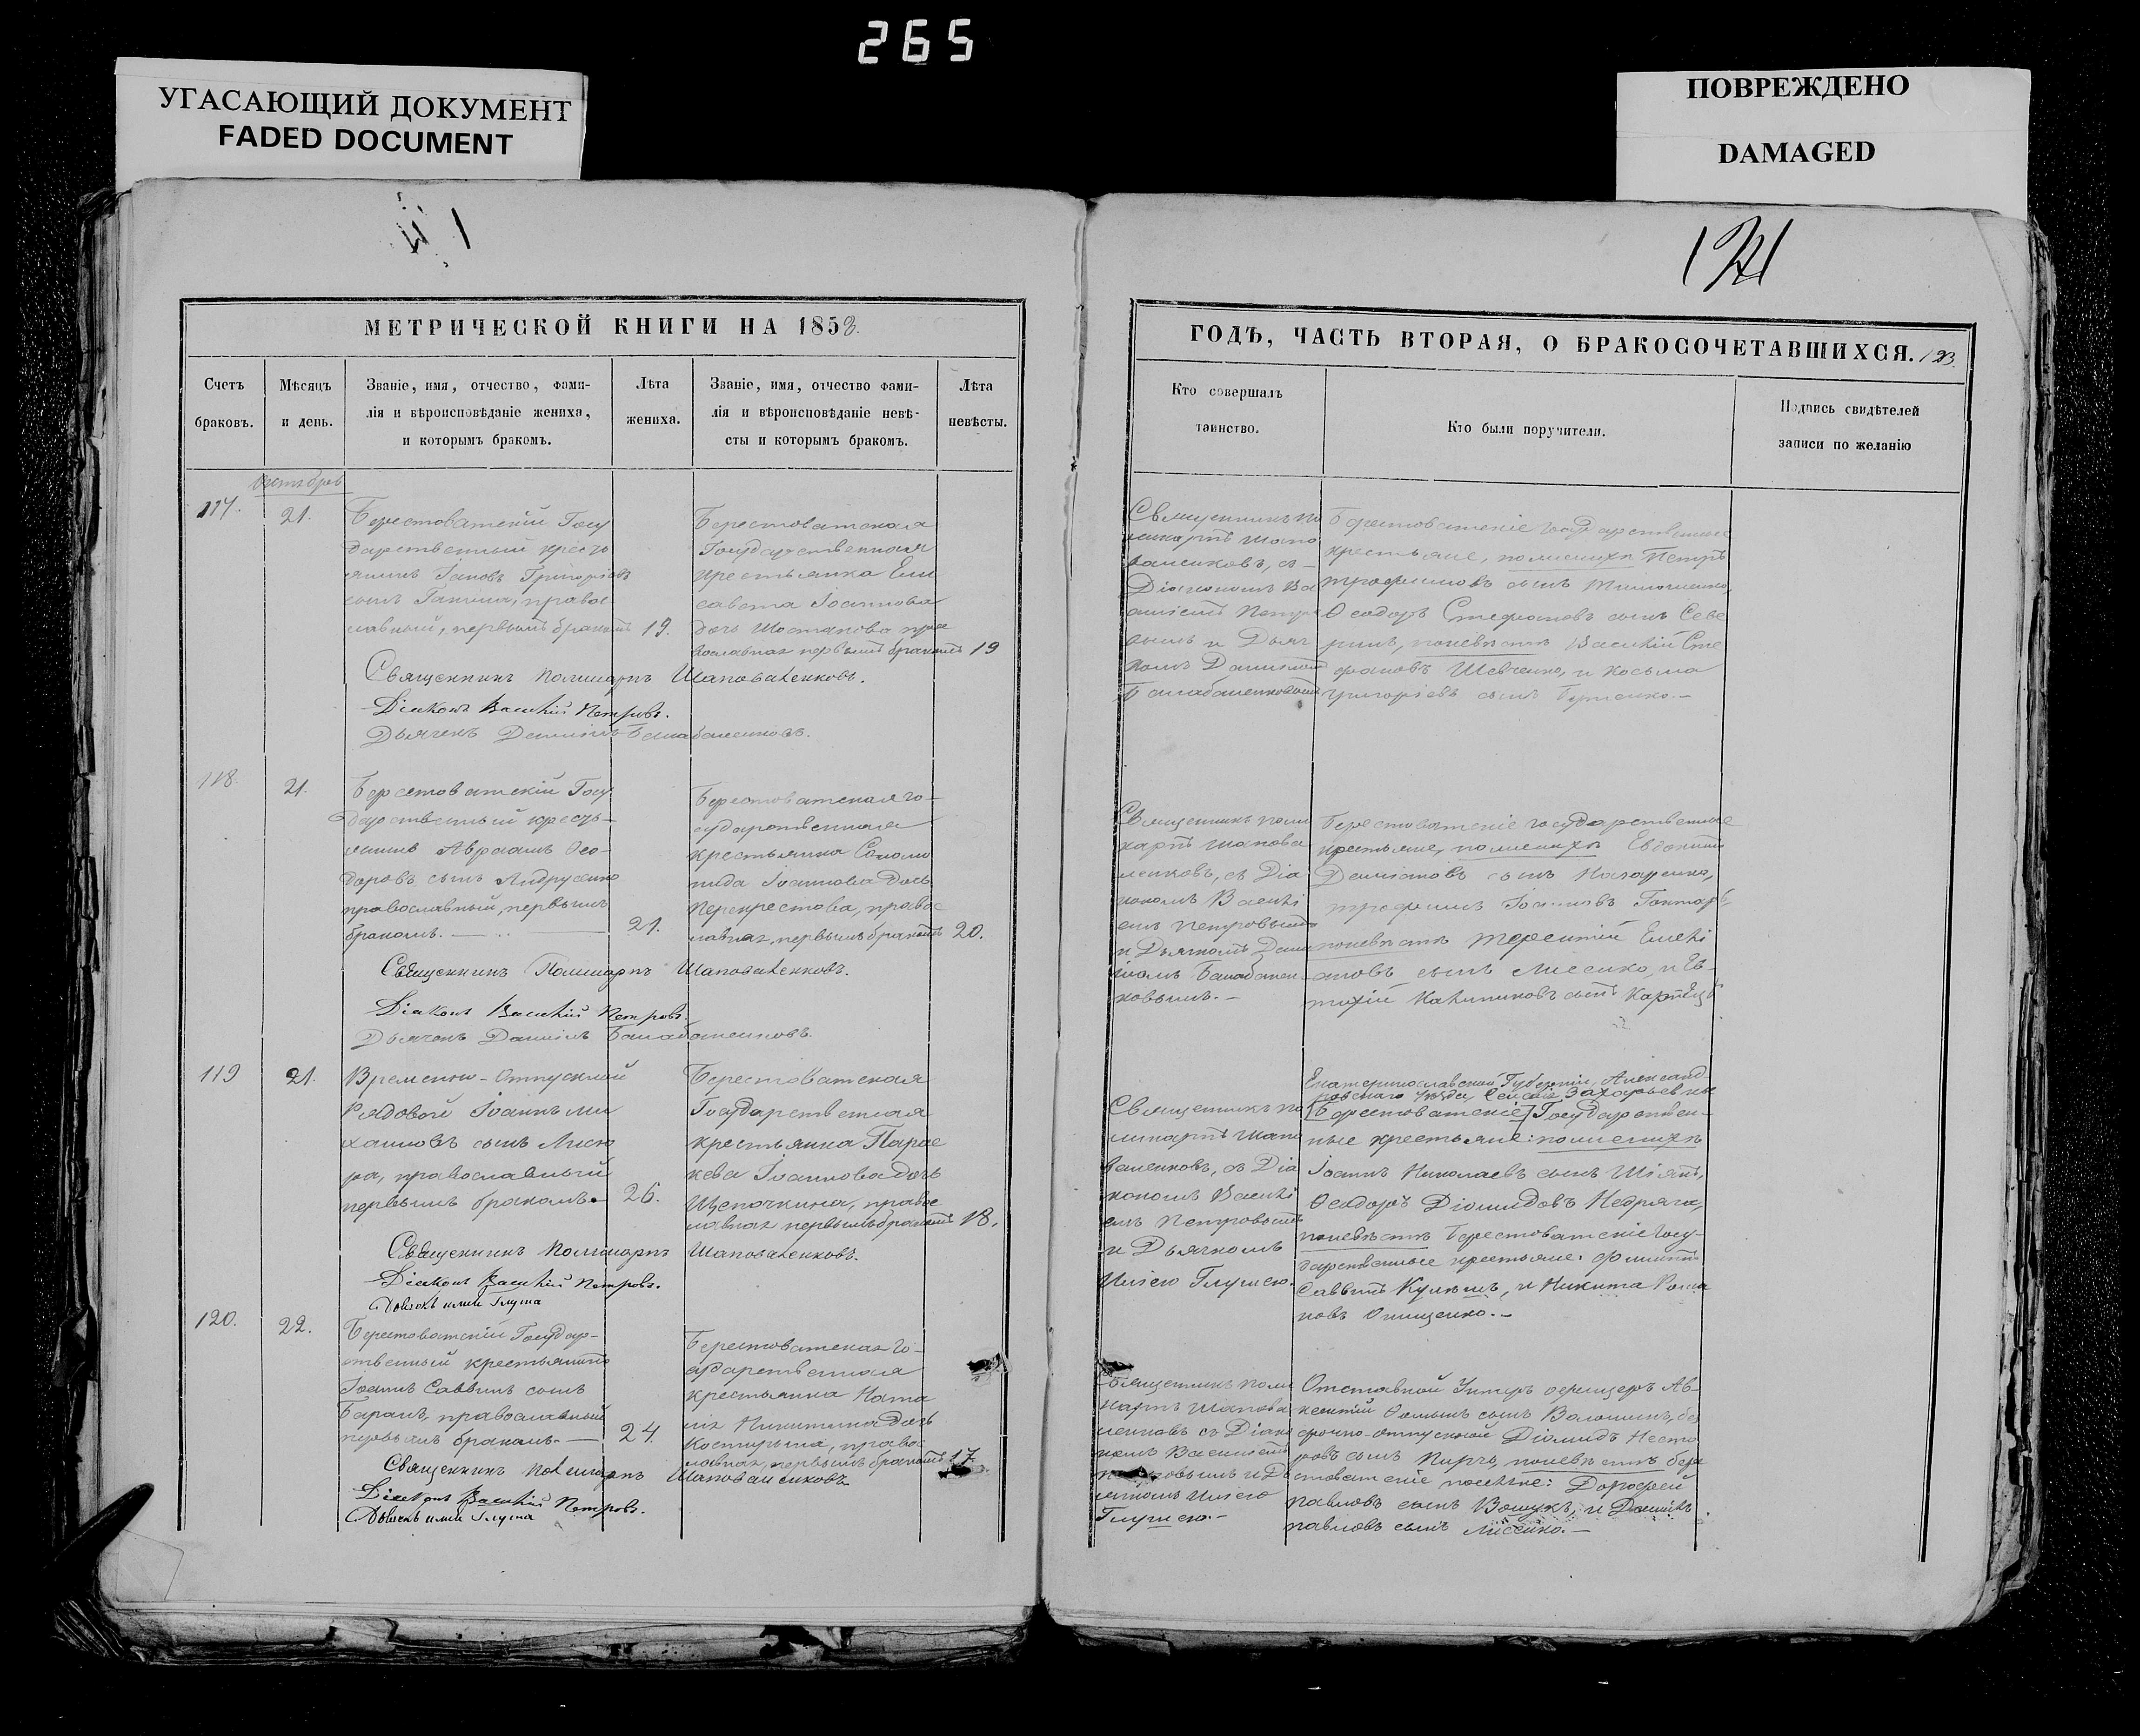 265
УГАСАЮЩИЙ ДОКУМЕНТ
FADED DOCUMENT
ПОВРЕЖДЕНО
DAMAGED
МЕТРИЧЕСКОЙ КНИГИ НА 1858.
Счетъ браковъ.
Мѣсяцъ и день.
Званіе, имя, отчество, фами-
лія и вѣроисповѣданіе жениха,
и которымъ бракомъ.
Лѣта жениха.
Званіе, имя, отчество фами-
лія и вѣроисповѣданіе невѣ-
сты и которымъ бракомъ.
Лѣта невѣсты.
октябрь
117.
21.
Берестоватскій Госу
дарственный кресть
янинъ Іаковъ Григоріевъ
сынъ Ганжа, правос
лавный, первымъ бракомъ
19.
Берестоватская
Государственная
крестьянка Ели
савета Іоаннова
дочь Шостакова прав
вославная первымъ бракомъ
19
Священникъ Поликарпъ Шаповаленковъ.
Діаконъ Василій Петровъ.
Дьячекъ Даніилъ Балабаненковъ.
118.
21.
Берестоватскій Госу
дарственный кресть-
янинъ Авраамъ Ѳео-
доровъ сынъ Андрусенко
православный, первымъ
бракомъ.
21.
Берестоватская го-
сударственная
крестьянка Соломо
нида Іоаннова дочь
Перекрестова, правос
лавная, первымъ бракомъ
20.
Священникъ Поликарпъ Шаповаленковъ.
Діаконъ Василій Петровъ.
Дьячекъ Даніилъ Балабаненковъ.
119
21.
Временно-Отпускной
Рядовой Іоаннъ Ми
хаиловъ сынъ Лисю
ра, православный
первымъ бракомъ.
26.
Берестоватская
Государственная
крестьянка Парас
кева Іоаннова дочь
Щепочкина, правос
лавная первымъ бракомъ
18.
Священникъ Поликарпъ Шаповаленковъ.
Діаконъ Василій Петровъ.
Дьячекъ Илія Глуша
120.
22.
Берестоватскій Государ-
ственный крестьянинъ
Іоаннъ Саввинъ сынъ
Баранъ, православный
первымъ бракомъ.
24
Берестоватская Го-
сударственная
крестьянка Ната
лія Никитина дочь
Костырина, правос
лавная, первымъ бракомъ
17
Священникъ Поликарпъ Шаповаленковъ
Діаконъ Василій Петровъ.
Дьячекъ Илія Глуша
ГОДЪ, ЧАСТЬ ВТОРАЯ, О БРАКОСОЧЕТАВШИХСЯ. 123.
Кто совершалъ
таинство.
Кто были поручители.
Подпись свидѣтелей
записи по желанію
Священникъ По
ликарпъ Шапо
валенковъ, съ
Діакономъ Ва
силіемъ Петро
вымъ и Дьяч
комъ Даніиломъ
Балабаненковымъ
Берестоватскіе государственные
крестьяне, по женихѣ Петръ
Трофимовъ сынъ Тимошенко,
Ѳеодоръ Стефановъ сынъ Севе
ринъ, по невѣстѣ Василій Сте
фановъ Шевченко, и Косьма
Григоріевъ сынъ Бутенко.
Священникъ Поли
карпъ Шапова
ленковъ, съ Діа
кономъ Василі
емъ Петровымъ
и Дьячкомъ Дані
иломъ Балабанен-
ковымъ.
Берестоватскіе государственные
крестьяне, по женихѣ Евдокимъ
Даміановъ сынъ Назаренко,
Трофимъ Іоанновъ
по невѣстѣ Терентій
сынъ Лисенко, и Ев-
тихій Калиниковъ сынъ
Екатеринославской Губерніи, Александ-
ровскаго Уѣзда,
[Берестоватскіе] Государствен-
ные крестьяне: по женихѣ
Іоаннъ Николаевъ сынъ
Ѳеодоръ Діомидовъ Недряга,
по невѣстѣ Берестоватскіе госу-
дарственные крестьяне: Филиппъ
и Никита Рома
новъ Онищенко.
Священникъ По
ликарпъ Шапо
валенковъ, съ Діа
кономъ Василі
емъ Петровымъ
и Дьячкомъ
Иліею Глушею.
Священникъ Поли
карпъ Шапова
ленковъ съ Діако
номъ Василіемъ
Петровымъ и Дь
ячкомъ Иліею
Глушею.
Отставной Унтеръ офицеръ Ав-
сынъ Волошинъ, без
срочно-отпускной Діомидъ Несто
ровъ сынъ по невѣстѣ бере
стоватскіе Дорофей
Павловъ сынъ и Даніилъ
Павловъ сынъ Лисенко.